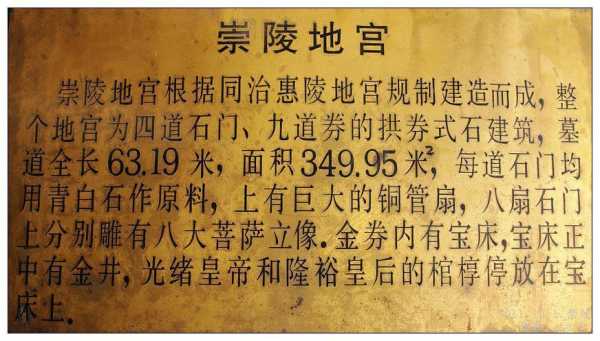 崇陵地宫
崇陵地宫根据同治惠陵地宫规制建造而成，整
个地宫为四道石门、九道券的拱券式石建筑，墓
道全长63.19米，面积349.95米²，每道石门均
用青白石作原料，上有巨大的铜管扇，八扇石门
上分别雕有八大菩萨立像.金券内有宝床，宝床正
中有金井，光绪皇帝和隆裕皇后的棺椁停放在宝
床上.